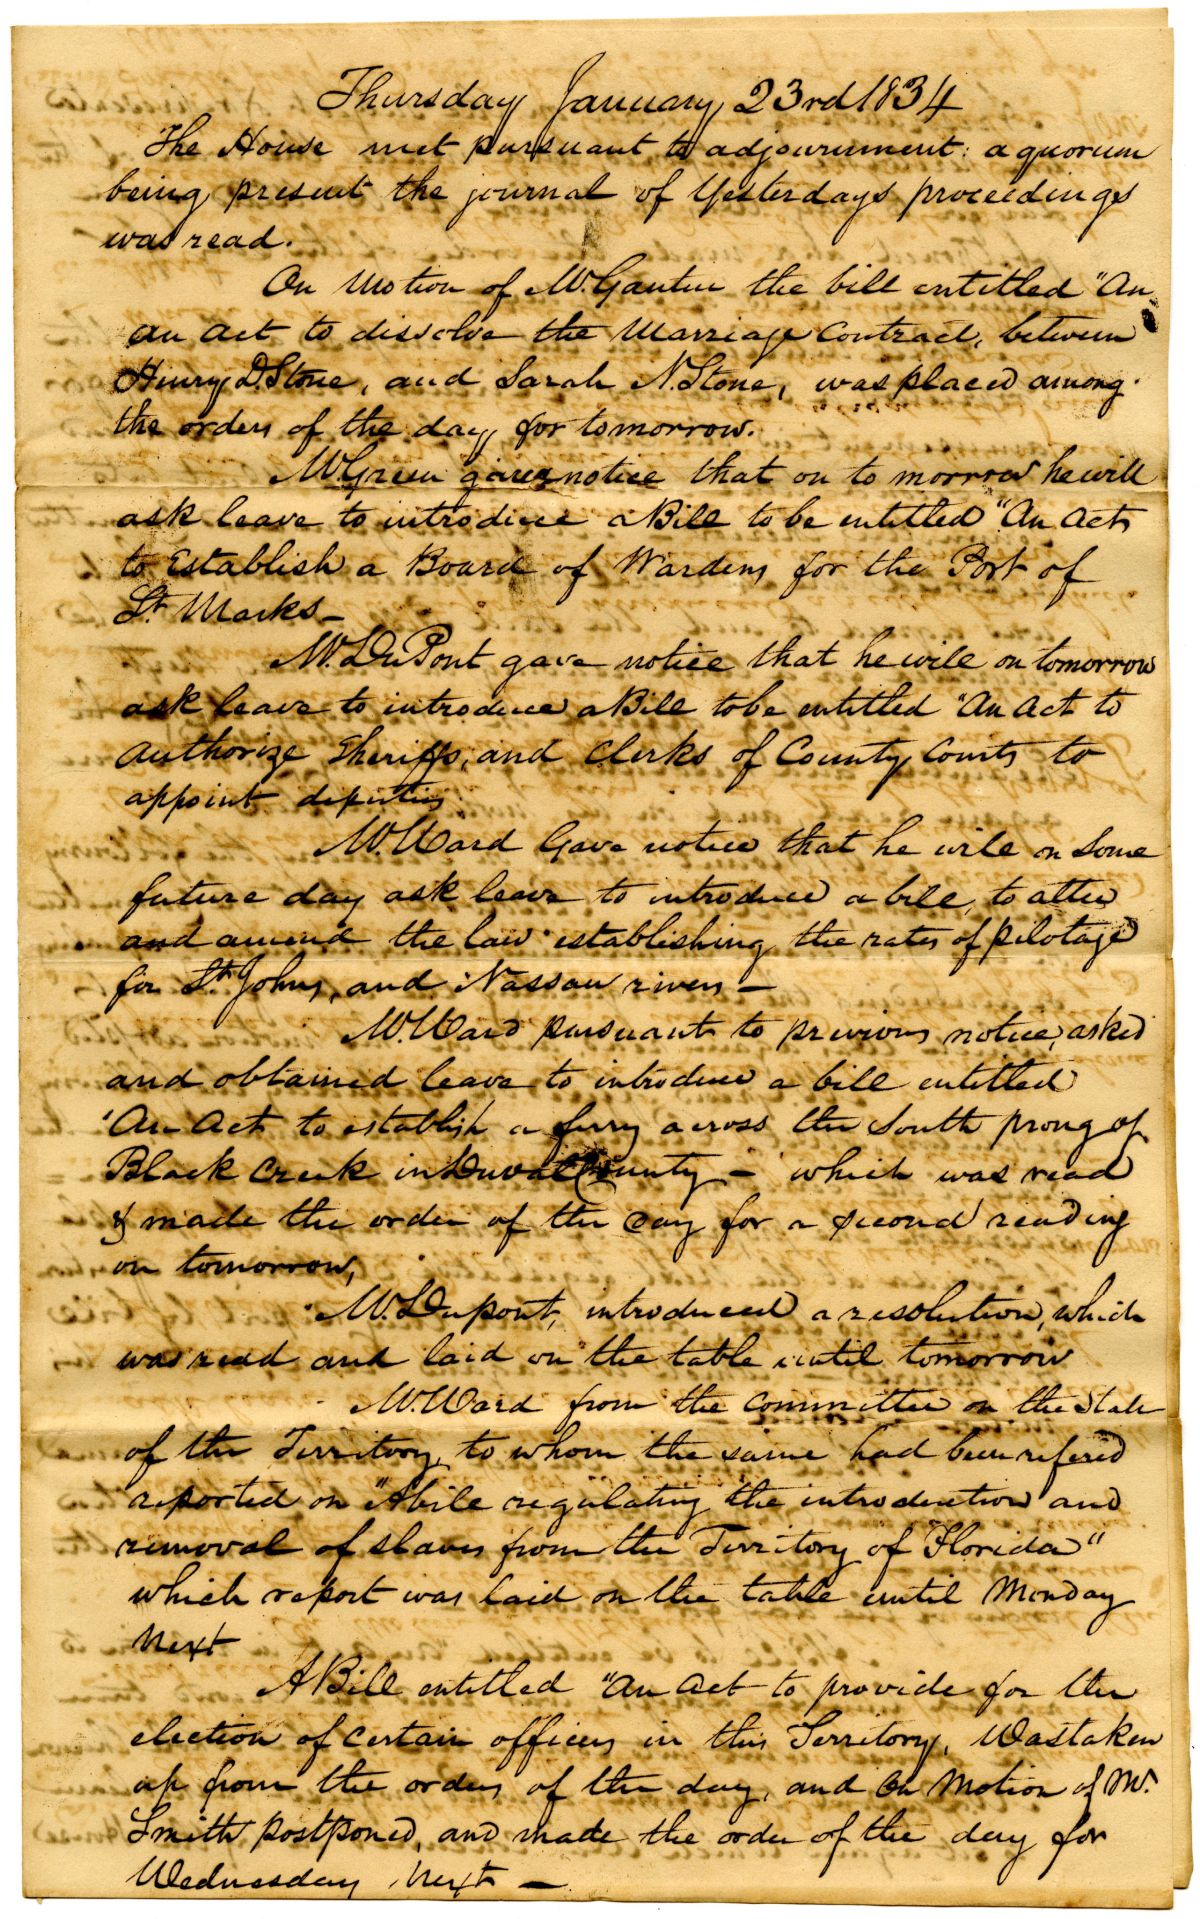 Thursday January 23rd 1834
The House met pursuant to adjournment: a quorum
being present the journal of Yesterdays proceedings
was read.
On Motion of Mr. Gautier the bill entitled "An
an act to dissolve the Marriage Contract, between
Henry D. Stone, and Sarah N. Stone, was placed among
the orders of the day for tomorrow.
Mr. Green gave notice that on to morrow he will
ask leave to introduce a Bill to be entitled "An Act
to Establish a Board of Wardens for the Port of
St. Marks—
Mr. DuPont gave notice that he will on tomorrow
ask leave to introduce a Bill to be entitled "An Act to
authorize Sheriffs, and Clerks of County Courts to
appoint deputies.
Mr. Ward Gave notice that he will on Some
future day ask leave to introduce a bill, to alter
and amend the law establishing the rates of pilotage
for St. Johns, and Nassau rivers—
Mr. Ward pursuant to previous notice, asked
and obtained leave to introduce a bill entitled
'An Act to establish a ferry across the South prong of
Black Creek in Duval County— which was read
& made the order of the day for a second reading
on tomorrow,
Mr. Dupont, introduced a resolution, which
was read and laid on the table until tomorrow
Mr. Ward from the Committee on the State
of the Territory, to whom the same had been refered
reported on "A bill regulating the introduction and
removal of slaves from the Territory of Florida"
which report was laid on the table until Monday
Next
A Bill entitled "An Act to provide for the
election of Certain officers in this Territory, Was taken
up from the orders of the day, and On Motion of Mr.
Smith postponed, and made the order of the day for
Wednesday Next—